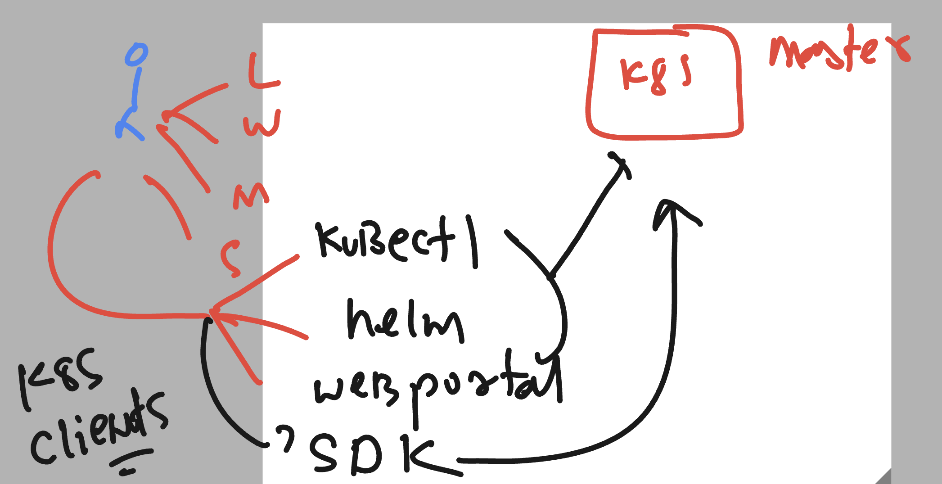 K8S
master
L
W
M
S
KuBectl
helm
weBportal
? SDK
K8S
clients